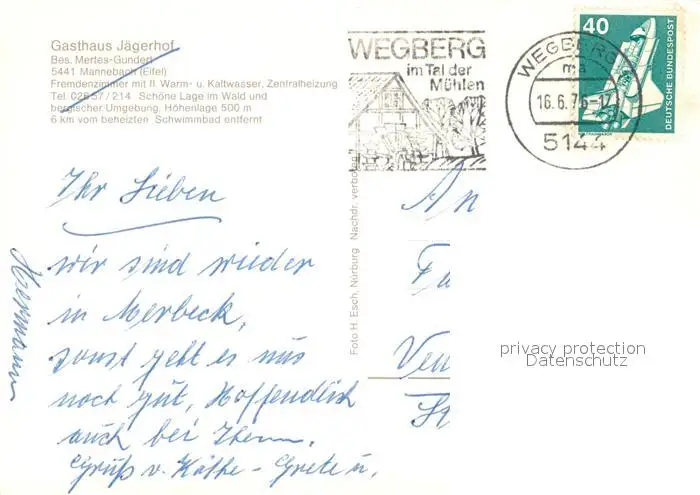 Gasthaus Jägerhof
Bes. Mertes-Gundert
5441 Mannebach (Eifel)
Fremdenzimmer mit fl. Warm- u. Kaltwasser, Zentralheizung
Tel. 02657/214 Schöne Lage im Wald und
bergischer Umgebung, Höhenlage 500 m
6 km vom beheizten Schwimmbad entfernt
WEGBERG
im Tal der
Mühlen
WEGBERG
ma
16.6.76-17
5144
40
DEUTSCHE BUNDESPOST
Ihr Lieben
wir sind wieder
in Merbeck,
sonst geht es uns
noch gut, Hoffendlich
auch bei Ihnen.
Grüß v. Käthe - Grete u.
Hermann
Foto H. Esch, Nürburg Nachdr. verboten
An
Fa
Ven
St
privacy protection
Datenschutz